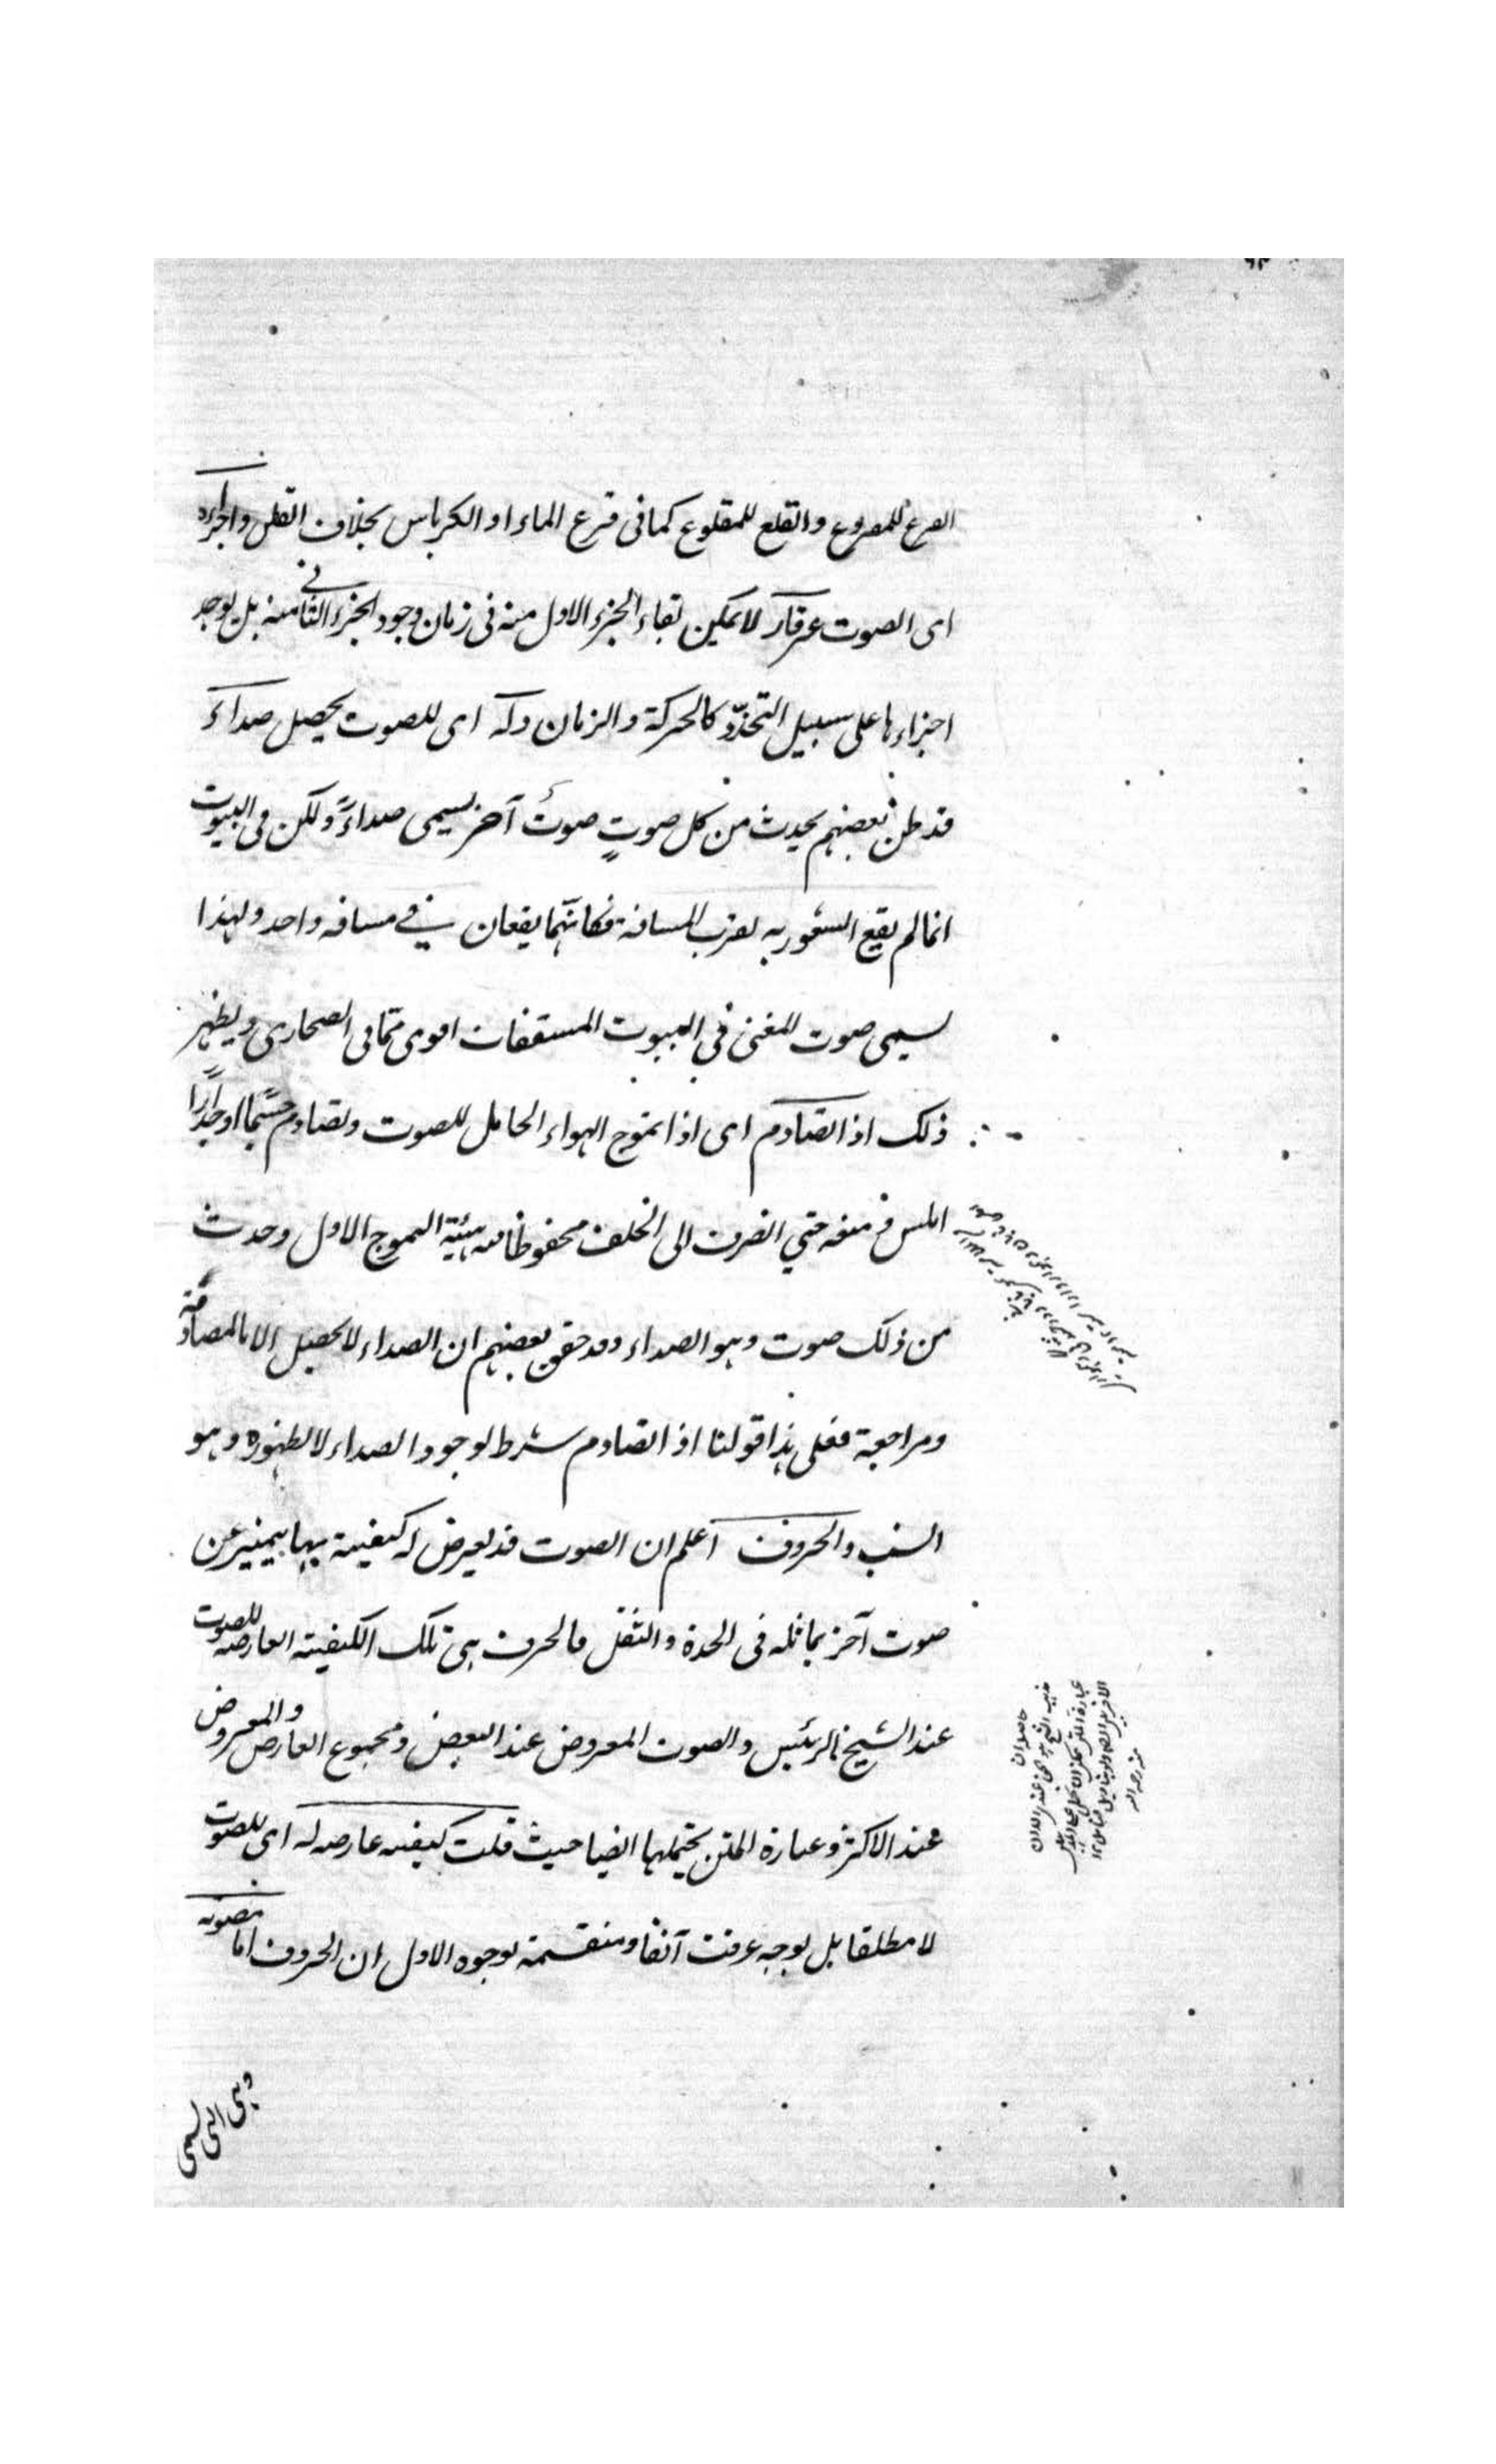 القرع للمقروع والقلع للمقلوع كما فى قرع الماء او الكرباس بخلاف القطن واجزاءه
اى الصوت غير قار لا يمكن بقاء الجزء الاول منه فى زمان وجود الجزء الثانى منه بل يوجد
اجزاءها على سبيل التجدّد كالحركة والزمان وله اى للصوت يحصل صداء
قد ظن بعضهم يحدث من كل صوتٍ صوتٌ آخر يسمى صداءً ولكن فى البيوت
انما لم يقع الشعور به لقرب المسافة فكانّهما يقعان فى مسافه واحد ولهذا
يسمى صوت المغنى فى البيوت المسقفات اقوى ممّا فى الصحارى ويظهر
ذلك اذا تصادم اى اذا تموج الهواء الحامل للصوت وتصادم جسمًا او جدارًا
املس منعه حتي انصرف الى الخلف محفوظا هيئة التموج الاول وحدث
من ذلك صوت وهو الصداء وقد حقق بعضهم ان الصداء لا يحصل الا بالمصادمة
ومراجعة فعلى هذا قولنا اذا تصادم شرط لوجود الصداء لا لظهوره وهو
السبب والحروف اعلم ان الصوت قد يعرض له كيفية بها يتميز عن
صوت آخر يماثله فى الحدة والثقل فالحرف هى تلك الكيفية العارضه للصوت
عند الشيخ الرئيس والصوت المعروض عند البعض ومجموع العارض والمعروض
عند الاكثر وعبارة المتن يحتملها ايضا حيث قلت كيفيه عارضه له اى للصوت
لا مطلقا بل بوجه عرفت آنفا ومنقسمة بوجوه الاول ان الحروف اما مصوته
وهى التى تسمى